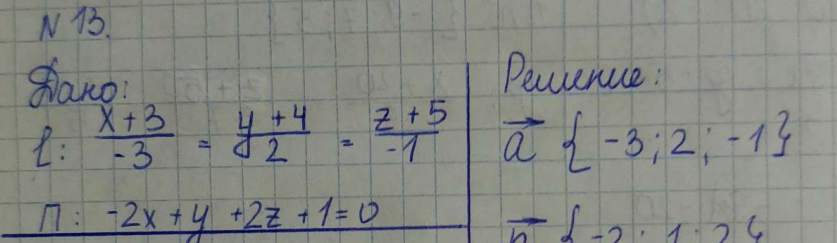 N 13.
Дано:
l: x+3/-3 = y+4/2 = z+5/-1
П: -2x+y+2z+1=0
Решение:
a {-3; 2; -1}
n {-2; 1; 2}